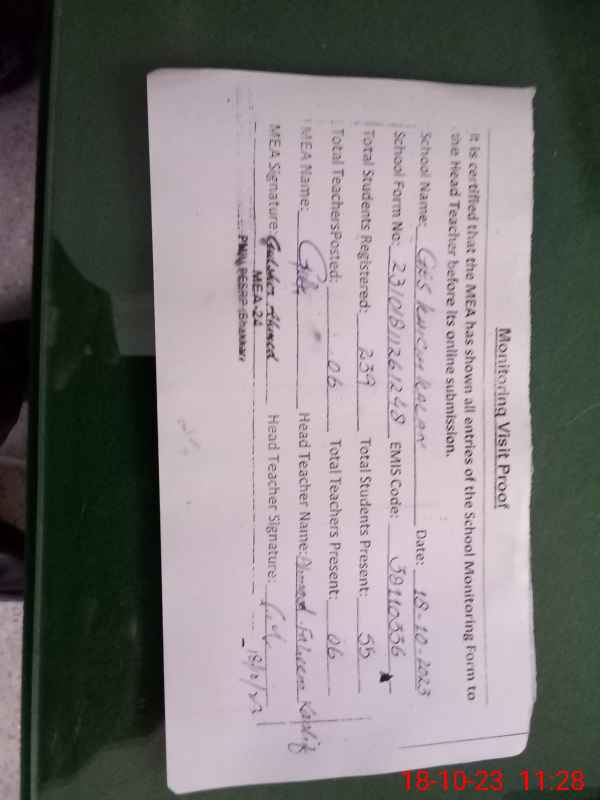 Monitoring Visit Proof
It is certified that the MEA has shown all entries of the School Monitoring Form to
the Head Teacher before its online submission.
School Name: GES KHICHI KALAN Date: 18-10-2023
School Form No: 23101811261248 EMIS Code: 38110336
Total Students Registered: 239 Total Students Present: 55
Total TeachersPosted: 06 Total Teachers Present: 06
MEA Name: Head Teacher Name: Faheem
MEA Signature: Gulsher Ahmed Head Teacher Signature:
MEA-24
PMIU PESRP (Bhakkar)
18-10-23 11:28